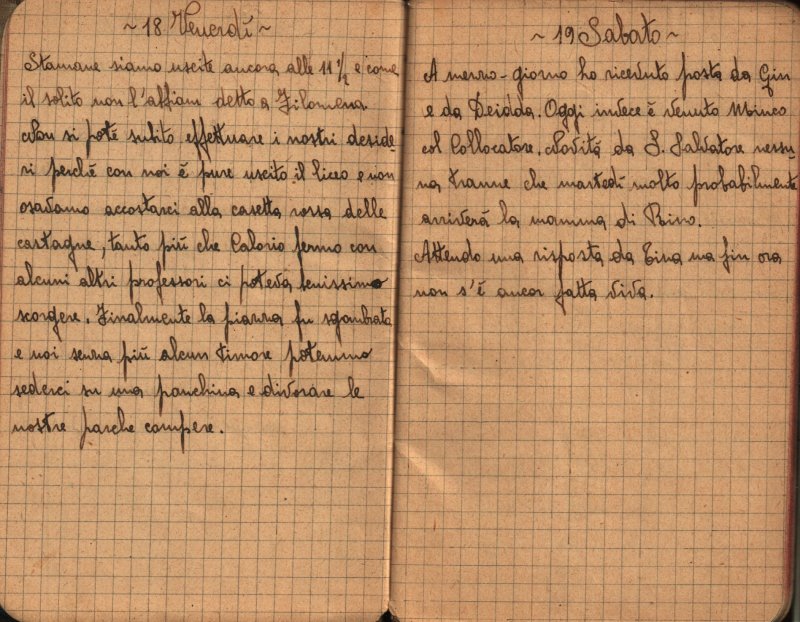 ~ 18 Venerdí ~
Stamane siamo uscite ancora alle 11 ½ e come
il solito non l'abbiam detto a Filomena.
Non si poté subito effettuare i nostri deside-
ri perché con noi é pure uscito il liceo e non
osavamo accostarci alla casetta rossa delle
castagne, tanto piú che Calorio fermo con
alcuni altri professori ci poteva benissimo
scorgere. Finalmente la piazza fu sgombrata
e noi senza piú alcun timore potemmo
sederci su una panchina e divorare le
nostre parche compere.
~ 19 Sabato ~
A mezzo-giorno ho ricevuto posta da Gin
e da Deidda. Oggi invece é venuto
col Collocatore. Novitá da S. Salvatore nessu-
na tranne che martedí molto probabilmente
arriverá la mamma di Rino.
Attendo una risposta da Tina ma fin ora
non s'é ancor fatta viva.